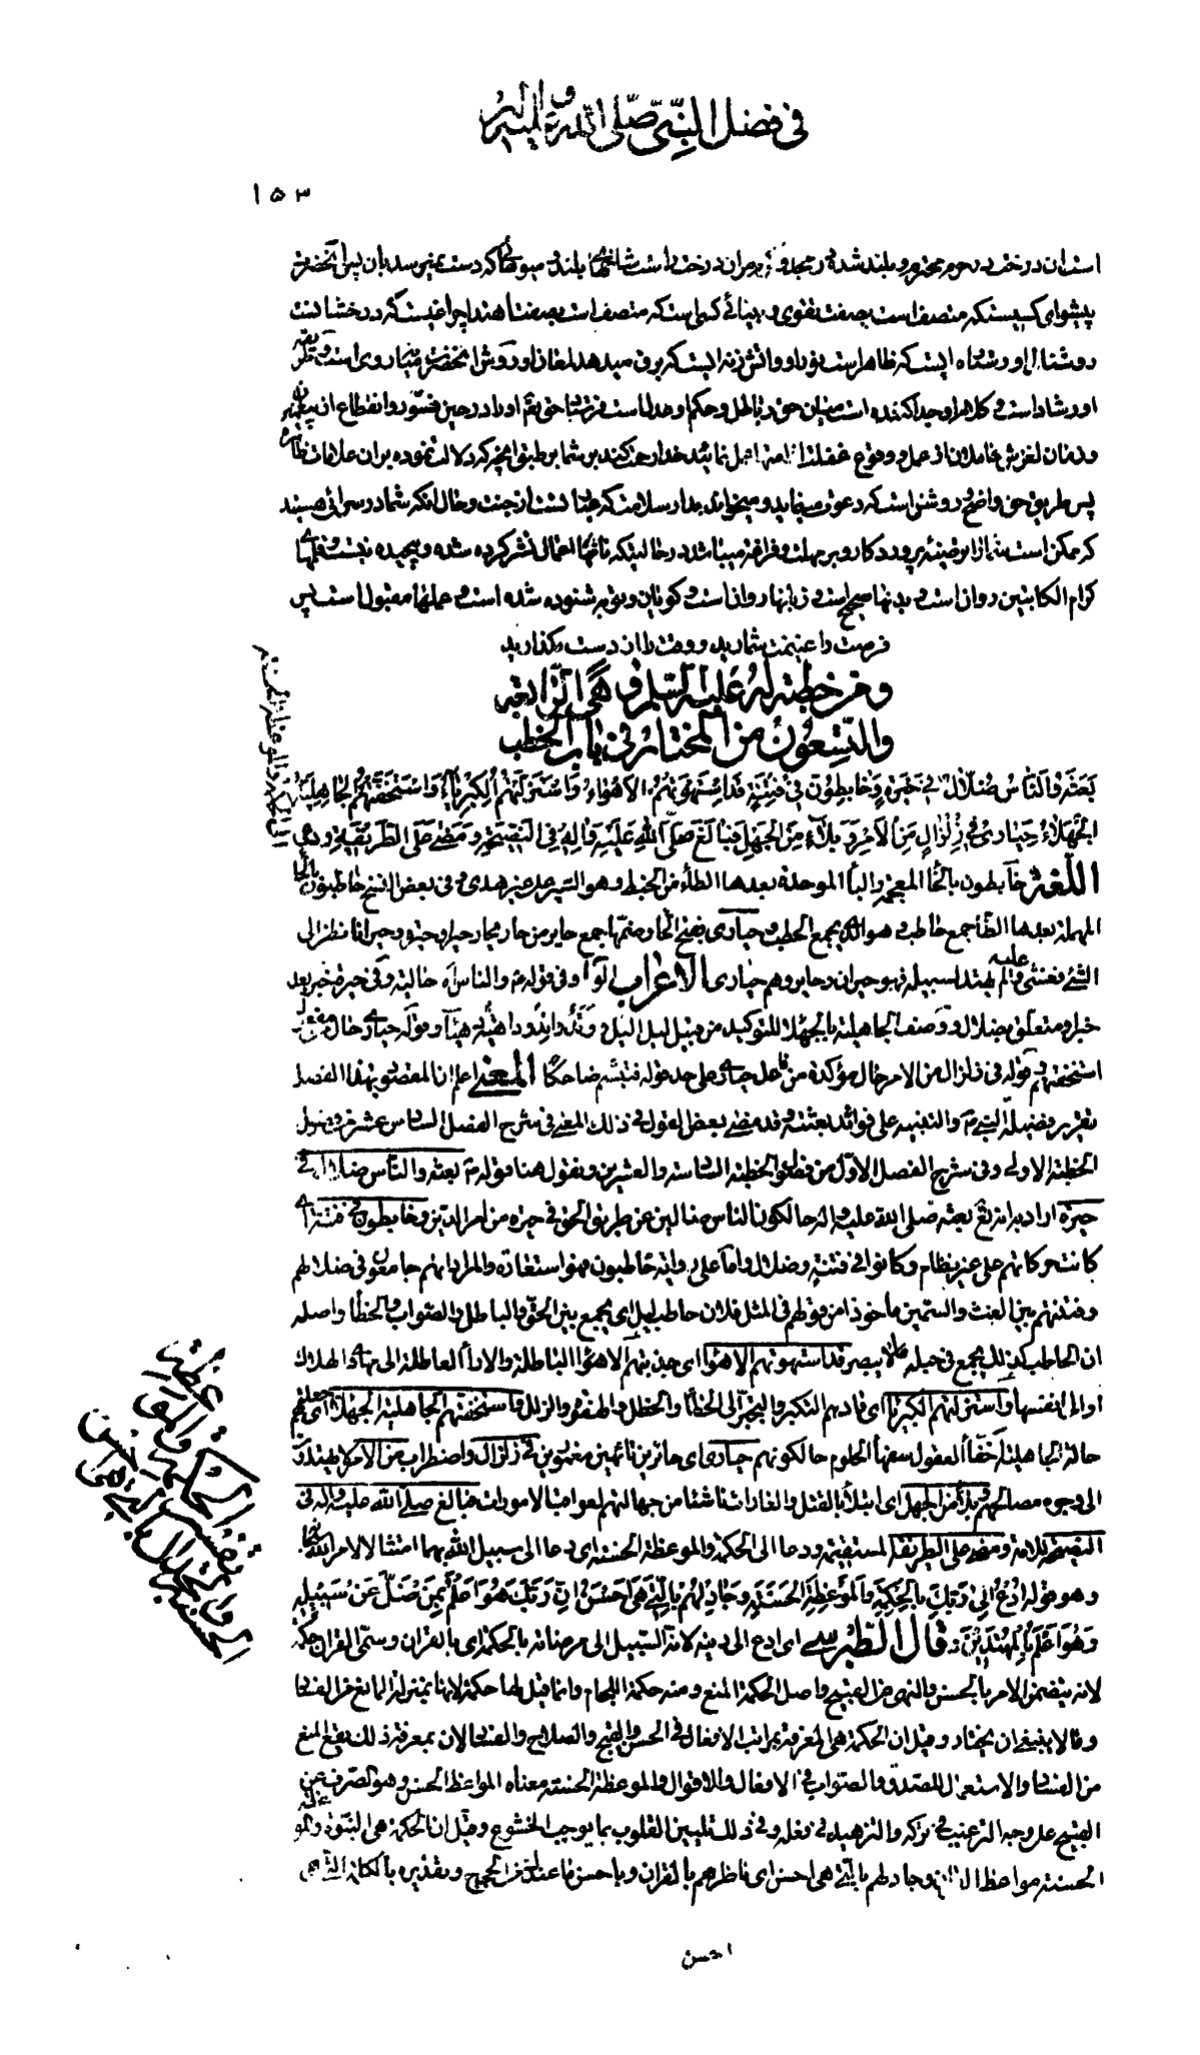 في فضل النبي صلى الله عليه وآله
١٥٣
است آن درخت در حرم محترم و بلند شد در مجد و مر آن درخت راست شاخهاى بلند و ميوهائى كه دست نميرسد بآن پس آنحضرت
پيشواى كسيست كه متصف است بصفت تقوى و بينائى كسى است كه متصف است بصفت اهتدا چراغيست كه درخشانست
روشنى او و ستاره ايست كه ظاهر است نور او و آتش زنه ايست كه برق ميدهد لمعان او روش آنحضرت ميانه روى است و طريقه
او رشاد است و كلام او جدا كننده است ميان حق و باطل و حكم او عدل است فرستاد حق تعالى او را در حين فتور و انقطاع از پيغمبران
و زمان لغزش عاملان از عمل و وقوع غفلت از امت عمل نمائيد خدا رحمت كند بر شما بر طبق آنچه كه دلالت نموده بر آن علامات ظاهره
پس طريق حق واضح و روشن است كه دعوت مينمايد و ميخواند بدار سلامت كه عبارتست از جنت و حال آنكه شما در سرائى هستيد
كه ممكن است شما را از در توضيه پروردكار و بر مهلت و فراغت ميباشد در حالتيكه نامهاى اعمال نشر كرده شده و پيچيده نيست و قلمهاى
كرام الكاتبين روان است و بدنها صحيح است و زبانها روان است و كويان و توبه شنوده شده است و عملها مقبول است پس
فرصت را غنيمت شماريد و وقت را از دست مكذاريد
ومن خطبة له عليه السلام وهي الرابعة
والتسعون من المختار في باب الخطب
بعثه والناس ضلال في حيرة، وخابطون في فتنة، قد استهوتهم الأهواء، واستزلتهم الكبرياء، واستخفتهم الجاهلية
الجهلاء، حيارى في زلزال من الأمر، وبلاء من الجهل، فبالغ صلى الله عليه وآله في النصيحة، ومضى على الطريقة، ودعى
اللغة خابطون بالخاء المعجمة والباء الموحدة بعدها الطاء من الخبط وهو السير على غير هدى وفي بعض النسخ حاطبون بالحاء
المهملة بعدها الطاء جمع حاطب وهو الذي يجمع الحطب وحيارى بفتح الحاء وضمها جمع حاير من حار يحار حيرا وحيرة وحيرانا نظر إلى
الشيء فغشي عليه ولم يهتد لسبيله فهو حيران وحاير وهم حيارى الاعراب الواو في قوله والناس اه حالية وفي حيرة خبر بعد
خبر او متعلق بضلال ووصف الجاهلية بالجهلاء للتوكيد من قبيل ليل اليل ووتد واتد وداهية دهياء وقوله حيارى حال من مفعول
استخفتهم وقوله في زلزال من الامر حال مؤكدة من فاعل حيارى على حد قوله فتبسم ضاحكا المعنى اعلم ان المقصود بهذا الفصل
تقرير فضيلة النبي والتنبيه على فوائد بعثته وقد مضى بعض القول في ذلك المعنى في شرح الفصل السادس عشر من فصول
الخطبة الاولى وفي شرح الفصل الاول من فصلي الخطبة السادسة والعشرين ونقول هنا قوله بعثه والناس ضلال في
حيرة اراد به انه تعالى بعثه صلى الله عليه وآله حالكون الناس ضالين عن طريق الحق في حيرة من امر الدين وخابطون في فتنة اى
كانت حركاتهم على غير نظام وكانوا في فتنة وضلال واما على رواية حاطبون فهو استعارة والمراد انهم جامعون في ضلالهم
وفتنتهم بين الغث والسمين مأخوذا من قولهم في المثل فلان حاطب ليل اى يجمع بين الحق والباطل والصواب والخطاء واصله
ان الحاطب كذلك يجمع في حبله ما لا يبصر قد استهوتهم الاهواء اى جذبتهم الاهواء الباطلة والاراء العاطلة الى مهاوى الهلاك
او الى انفسها واستزلتهم الكبرياء اى قادهم التكبر والتجبر الى الخطاء والخطل والهفوة والزلل واستخفتهم الجاهلية الجهلاء اى جعلتهم
حالة الجاهلية اخفاء العقول سفهاء الحلوم حالكونهم حيارى اى حائرين تائهين مغمورين في زلزال واضطراب من الامر لا يهتدون
الى وجوه مصالحهم وبلاء من الجهل اى ابتلاء بالقتل والغارات ناشئا من جهالتهم لعواقب الامور فبالغ صلى الله عليه وآله في
النصيحة للامة ومضى على الطريقة المستقيمة ودعا الى الحكمة والموعظة الحسنة اى دعا الى سبيل الله بهما امتثالا لامر الله سبحانه
وهو قوله ادع الى سبيل ربك بالحكمة والموعظة الحسنة وجادلهم بالتي هي احسن ان ربك هو اعلم بمن ضل عن سبيله
وهو اعلم بالمهتدين قال الطبرسي اى ادع الى دينه لانه السبيل الى مرضاته بالحكمة اى بالقران وسمى القران حكمة
لانه يتضمن الامر بالحسن والنهى عن القبيح واصل الحكمة المنع ومنه حكمة اللجام وانما قيل لها حكمة لانها بمنزلة المانع من الفساد
وما لا ينبغي ان يختار وقيل ان الحكمة هي المعرفة بمراتب الافعال في الحسن والقبح والصلاح والفساد لان بمعرفة ذلك يقع المنع
من الفساد والاستعمال للصدق والصواب في الافعال والاقوال والموعظة الحسنة معناه المواعظ الحسن وهو الصرف عن
القبيح على وجه الترغيب في تركه والتزهيد في فعله وفي ذلك تليين القلوب بما يوجب الخشوع وقيل ان الحكمة هي النبوة والموعظة
الحسنة مواعظ القران وجادلهم بالتي هي احسن اى ناظرهم بالقران وباحسن ما عندك من الحجج وتقديره بالكلمة التي هي
احسن
الى الحكمة والموعظة الحسنة
تفسير الحكمة والموعظة
الحسنة والجدال بالتي هي احسن